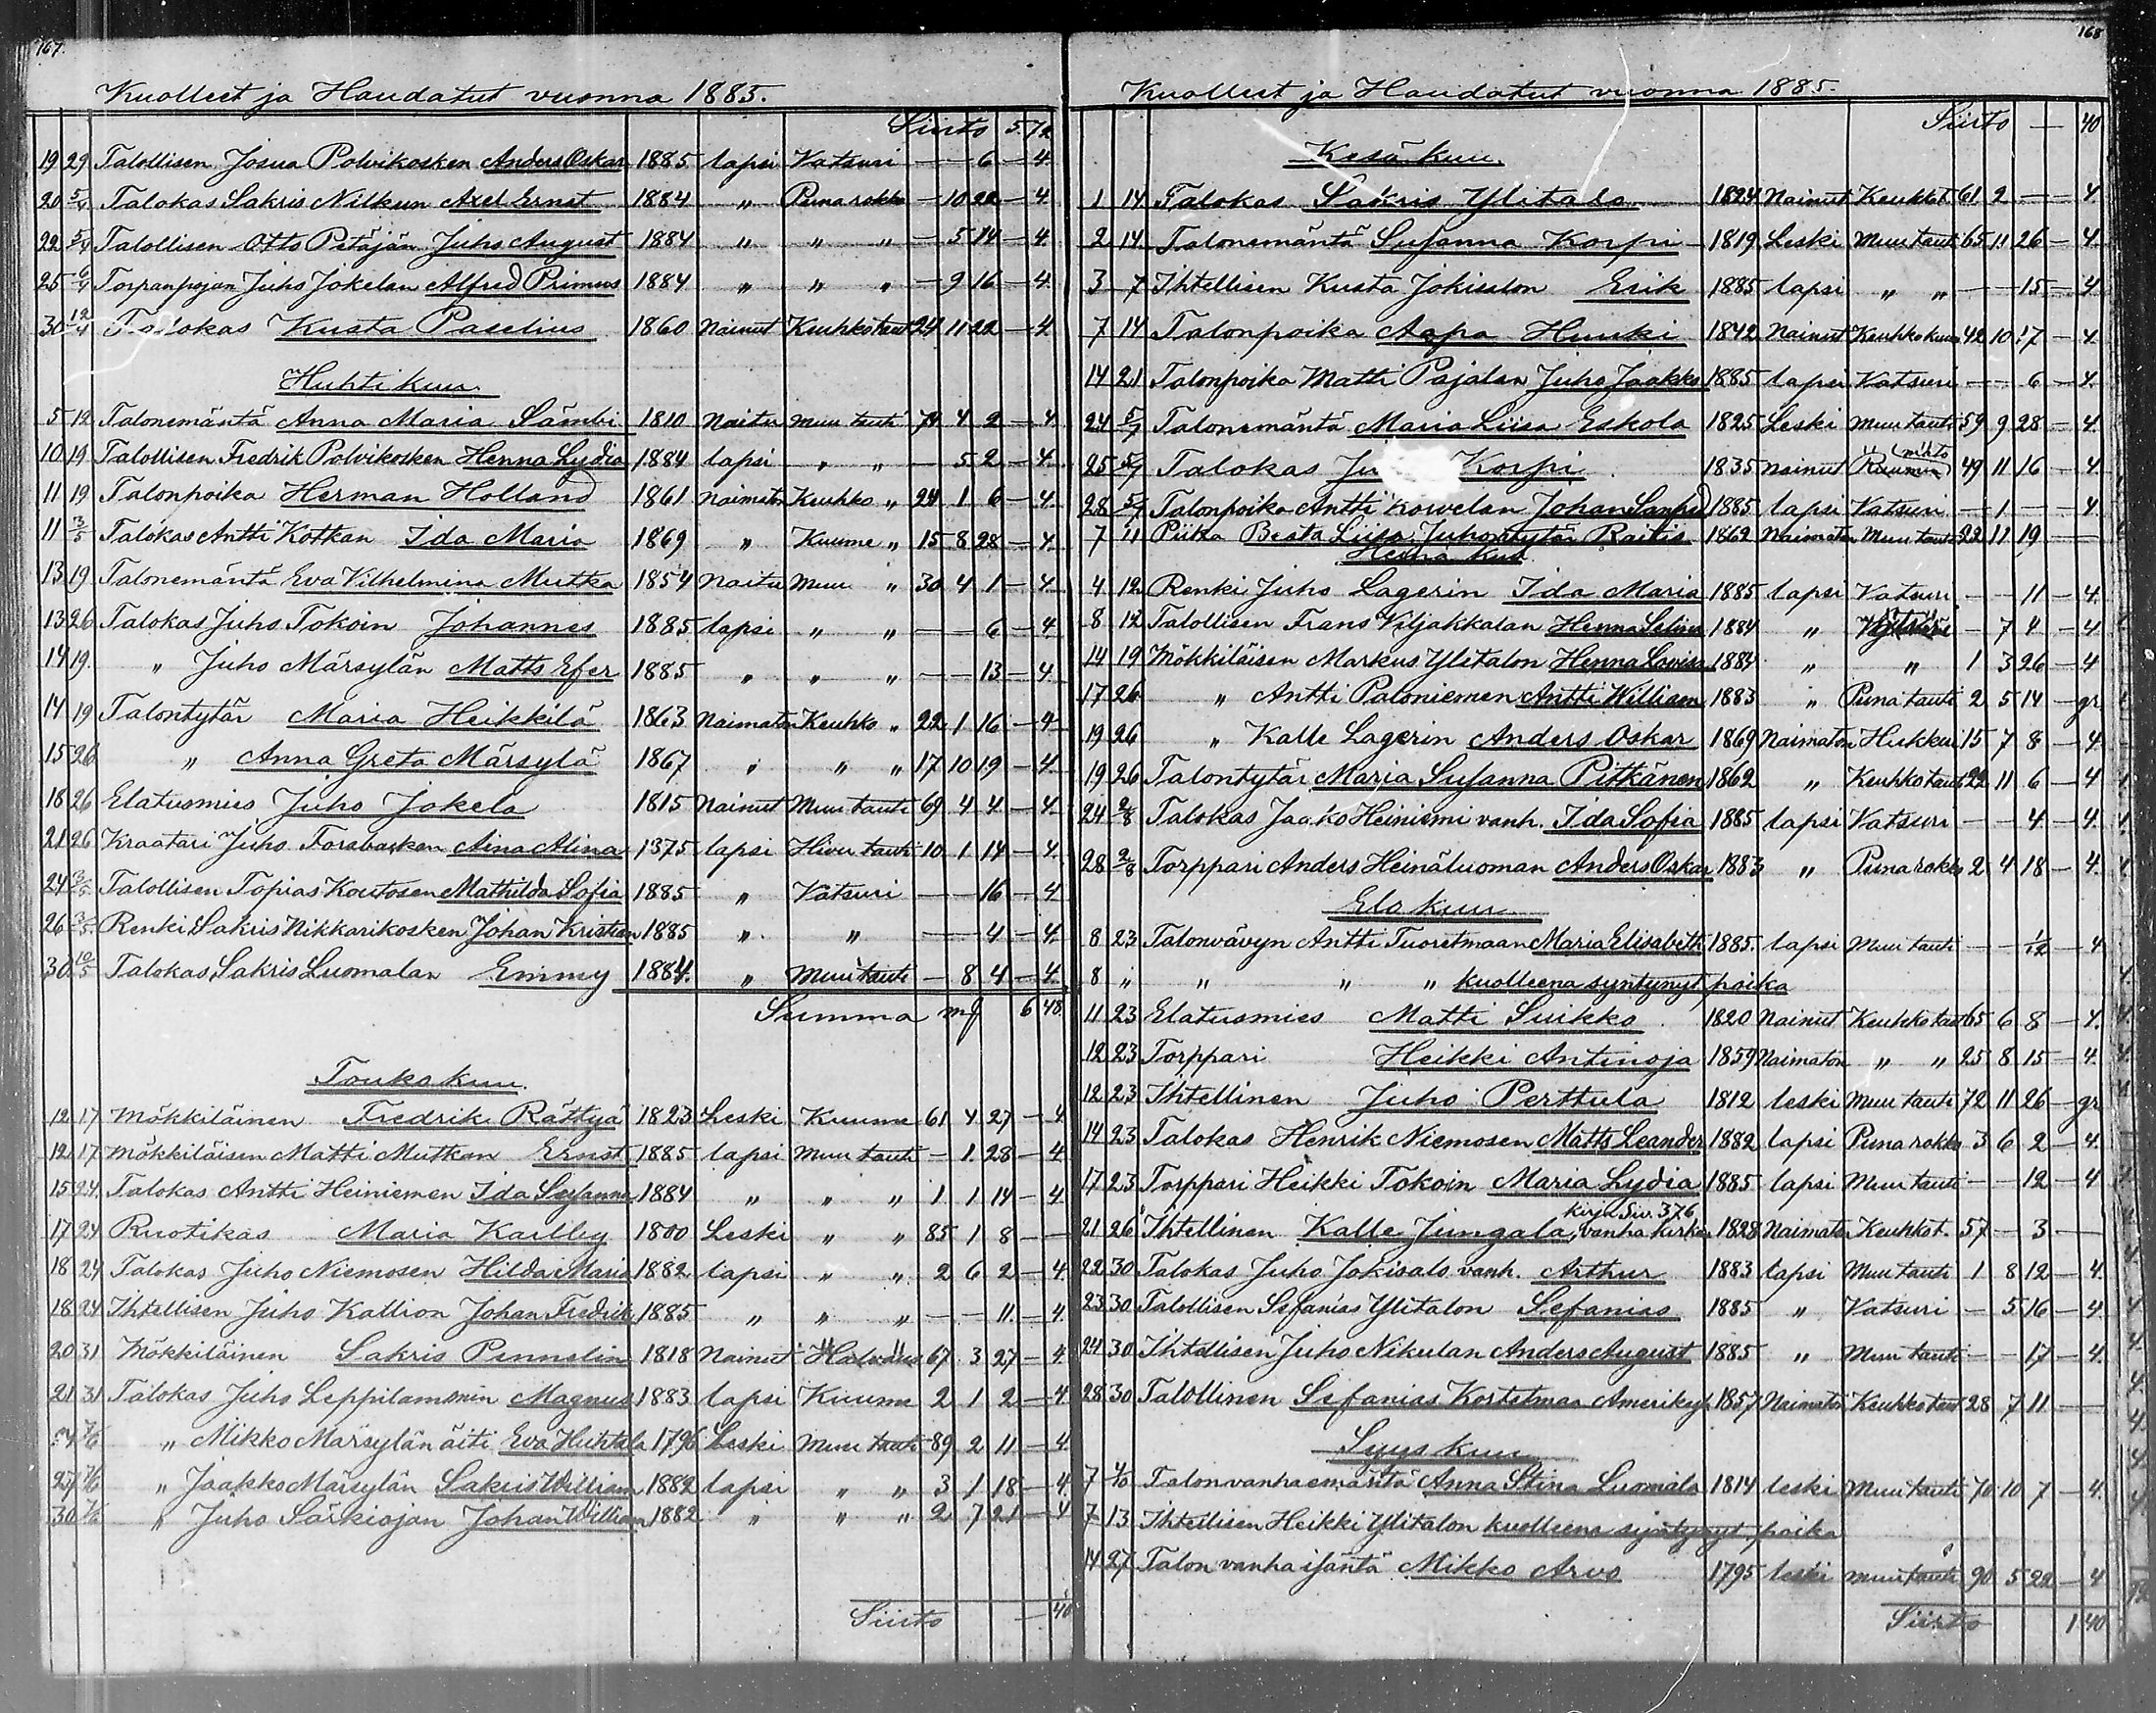 167.
Kuolleet ja Haudatut vuonna 1885.
Siirto 5 72
19 29 Talollisen Josua Polvikosken Anders Oskar 1885 lapsi Vatsuri — — 6 — 4
20 5/4 Talokas Sakris Nilkun Axel Ernst 1884 " Punarokko — 10 22 — 4
22 5/4 Talollisen Otto Petäjän Juho August 1884 " " " — 5 14 — 4
25 6/4 Torpanpojan Juho Jokelan Alfred Primus 1884 " " " — 9 16 — 4
30 12/4 Talokas Kusta Paselius 1860 Nainut Keuhkotaut 24 11 22 — 4
Huhtikuu.
5 12 Talonemäntä Anna Maria Sämbi 1810 Naitu Muu tauti 74 4 2 — 4
10 19 Talollisen Fredrik Polvikosken Henna Lydia 1884 lapsi " " — 5 2 — 4
11 19 Talonpoika Herman Holland 1861 Naimaton Keuhko " 24 1 6 — 4
11 3/5 Talokas Antti Kotkan Ida Maria 1869 " Kuume " 15 8 28 — 4
13 19 Talonemäntä Eva Vilhelmina Mutka 1854 Naitu Muu " 30 4 1 — 4
13 26 Talokas Juho Tokoin Johannes 1885 lapsi " " — — 6 — 4
14 19. " Juho Märsylän Matts Efer 1885 " " " — — 13 — 4
14 19 Talontytär Maria Heikkilä 1863 Naimaton Keuhko " 22 1 16 — 4
15 26 " Anna Greta Märsylä 1867 " " " 17 10 19 — 4
18 26 Elatusmies Juho Jokela 1815 Nainut Muu tauti 69 4 4 — 4
21 26 Kraatari Juho Forsbacken Aina Alina 1875 lapsi Hivu tauti 10 1 14 — 4
24 3/5 Talollisen Topias Koutosen Mathilda Sofia 1885 " Vatsuri — — 16 — 4
26 3/5 Renki Sakris Nikkarikosken Johan Kristian 1885 " " — — 4 — 4
30 10/5 Talokas Sakris Luomalan Emmy 1884. " Muu tauti — 8 4 — 4
Summa mf 6 48
Toukokuu.
12 17 Mökkiläinen Fredrik Rättyä 1823 Leski Kuume 61 4 27 — 4
12 17 Mökkiläisen Matti Mutkan Ernst 1885 lapsi Muu tauti — 1 28 — 4
15 24 Talokas Antti Heiniemen Ida Susanna 1884 " " " 1 1 14 — 4
17 24 Ruotikas Maria Karlby 1800 Leski " " 85 1 8 — —
18 24 Talokas Juho Niemosen Hilda Maria 1882 lapsi " " 2 6 2 — 4
18 24 Ihtellisen Juho Kallion Johan Fredrik 1885 " " " — — 11 — 4
20 31 Mökkiläinen Sakris Pennelin 1818 Nainut Halvaus 67 3 27 — 4
21 31 Talokas Juho Leppilammin Magnus 1883 lapsi Kuume 2 1 2 — 4
7/6 " Mikko Märsylän äiti Eva Huhtala 1796 Leski Muu tauti 89 2 11 — 4
27 7/6 " Jaakko Märsylän Sakris William 1882 lapsi " " 3 1 18 — 4
30 7/6 " Juho Särkiojan Johan William 1882 " " " 2 7 21 — 4
Siirto — 40
168
Kuolleet ja Haudatut vuonna 1885.
Siirto — 40
Kesäkuu.
1 14 Talokas Sakris Ylitalo 1824 Nainut Keuhkot. 61 2 — — 4
2 14 Talonemäntä Susanna Korpi 1819 Leski Muu tauti 65 11 26 — 4
3 7 Ihtellisen Kusta Jokisalon Erik 1885 lapsi " " — — 15 — 4
7 14 Talonpoika Aapa Huuki 1842 Nainut Keuhkokuu 42 10 17 — 4
14 21 Talonpoika Matti Pajalan Juho Jaakko 1885 lapsi Vatsuri — — 6 — 4
24 5/7 Talonemäntä Maria Liisa Eskola 1825 Leski Muu tauti 59 9 28 — 4
25 5/7 Talokas Ju Korpi 1835 Nainut Ruumin 49 11 16 — 4
28 5/7 Talonpoika Antti Korvelan Johan Sanfrid 1885 lapsi Vatsuri — 1 — — 4
7 11 Piika Beata Liisa Juhontytär Raitis 1862 Naimaton Muu tauti 22 11 19 —
Heinä kuu
4 12 Renki Juho Lagerin Ida Maria 1885 lapsi Vatsuri — — 11 — 4
8 12 Talollisen Frans Viljakkalan Henna Selina 1884 " Vatsuri — 7 4 — 4
14 19 Mökkiläisen Markus Ylitalon Henna Lovisa 1884 " " 1 3 26 — 4
17 26 " Antti Paloniemen Antti William 1883 " Puna tauti 2 5 14 — gr
19 26 " Kalle Lagerin Anders Oskar 1869 Naimaton Hukkui 15 7 8 — 4
19 26 Talontytär Maria Susanna Pitkänen 1862 " Keuhkotauti 22 11 6 — 4
24 2/8 Talokas Jaako Heiniemi vanh. Ida Sofia 1885 lapsi Vatsuri — — 4 — 4
28 2/8 Torppari Anders Heinäluoman Anders Oskar 1883 " Puna rokko 2 4 18 — 4
Elokuu
8 23 Talonvävyn Antti Tuoretmaan Maria Elisabeth 1885. lapsi Muu tauti — — 1/12 — 4
8 " " " " kuolleena syntynyt poika
11 23 Elatusmies Matti Suikko 1820 Nainut Keuhko taut 65 6 8 — 4.
12 23 Torppari Heikki Antinoja 1859 Naimaton " " 25 8 15 — 4
12 23 Ihtellinen Juho Perttula 1812 leski Muu tauti 72 11 26 — gr
14 23 Talokas Henrik Niemosen Matts Leander 1882 lapsi Puna rokko 3 6 2 — 4.
17 23 Torppari Heikki Tokoin Maria Lydia 1885 lapsi Muu tauti — — 12 — 4
kirja Siv. 376
21 26 Ihtellinen Kalle Jungala, vanha kirko 1828 Naimaton Keuhkot. 57 — 3 —
22 30 Talokas Juho Jokisalo vanh. Arthur 1883 lapsi Muu tauti 1 8 12 — 4.
23 30 Talollisen Sefanias Ylitalon Sefanias 1885 " Vatsuri — 5 16 — 4.
24 30 Ihtellisen Juho Nikulan Anders August 1885 " Muu tauti — — 17 — 4.
28 30 Talollinen Sefanias Kortetmaa 1857 Naimaton Keuhko taut 28 7 11 —
Syyskuu
7 4/10 Talon vanhaemäntä Anna Stina Luomala 1814 leski Muu tauti 70 10 7 — 4.
7 13 Ihtellisen Heikki Ylitalon kuolleena syntynyt poika
14 27 Talon vanha isäntä Mikko Arvo 1795 leski Muu tauti 90 5 22 — 4
Siirto 1 40